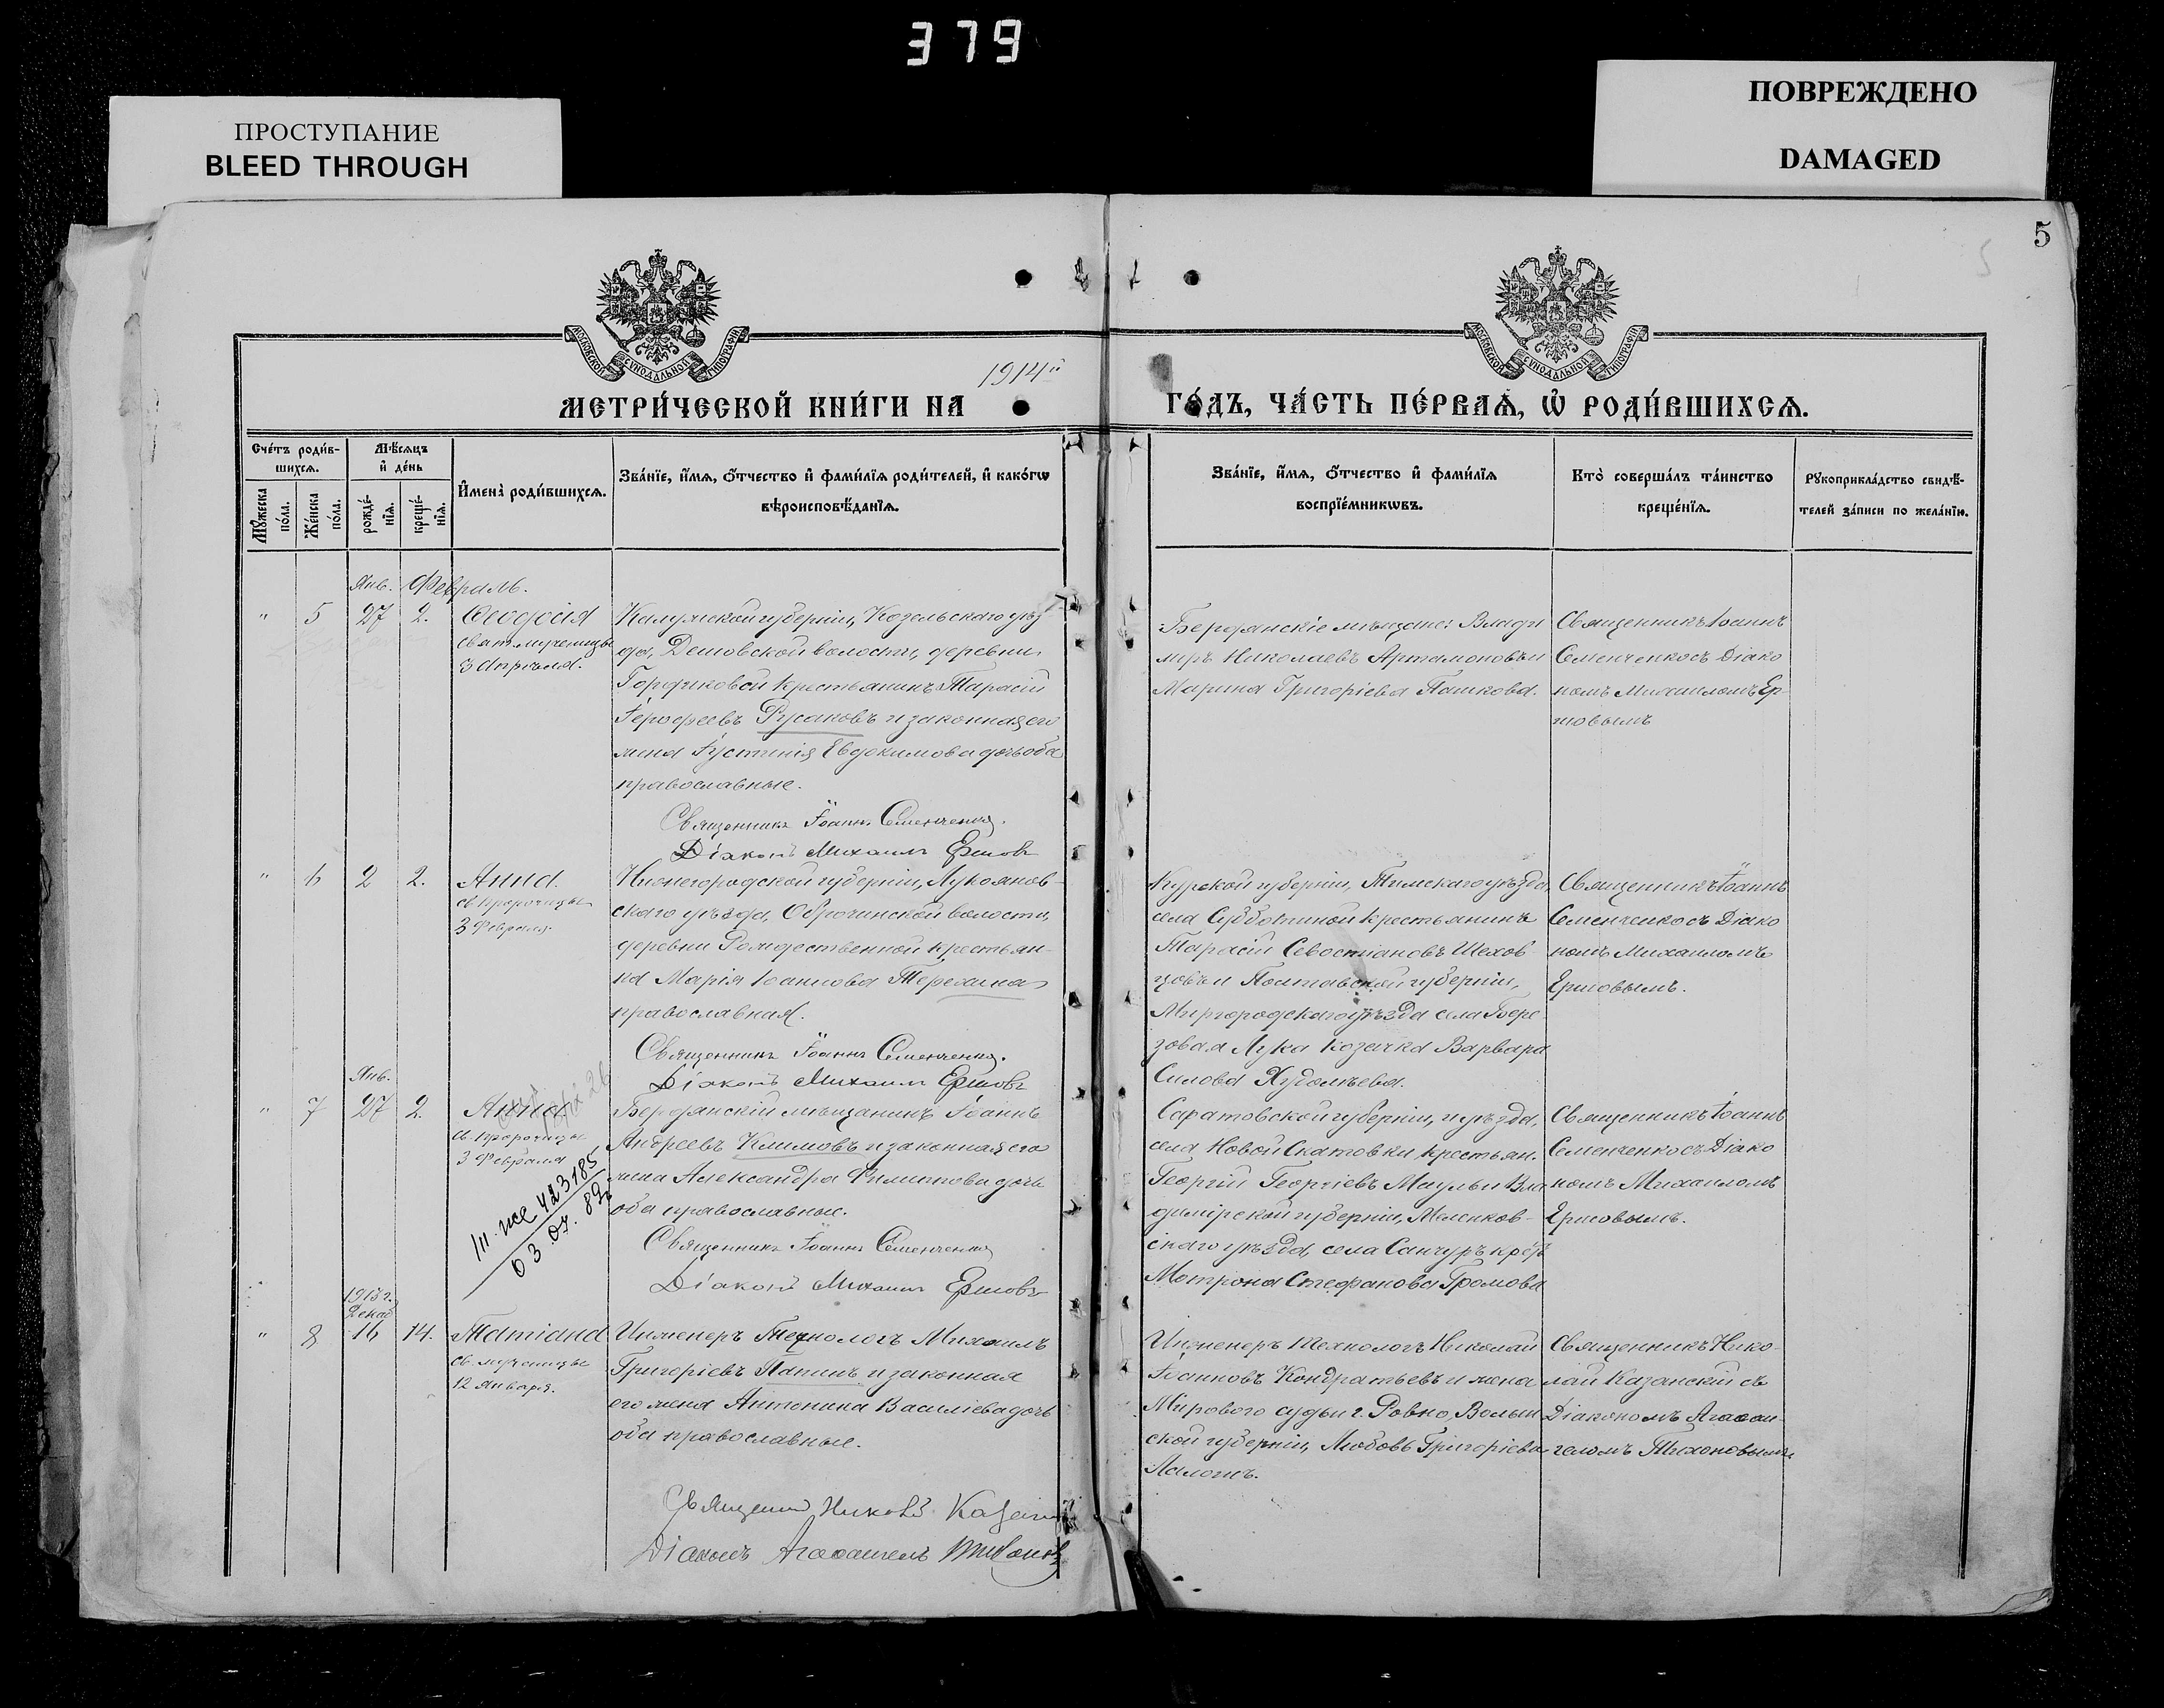 379
ПРОСТУПАНИЕ
BLEED THROUGH
ПОВРЕЖДЕНО
DAMAGED
5
5
МОСКОВСКОЙ СѴНОДАЛЬНОЙ ТИПОГРАФІИ
МОСКОВСКОЙ СѴНОДАЛЬНОЙ ТИПОГРАФІИ
1914й
МЕТРИ́ЧЕСКОЙ КНИ́ГИ НА
ГО́ДЪ, ЧА́СТЬ ПЕ́РВАѦ, Ѡ҆ РОДИ́ВШИХСѦ.
Сче́тъ роди́в-
шихсѧ.
Мѣ́сѧцъ
и҆ де́нь
И҆мена̀ роди́вшихсѧ.
Зва́нїе, и҆́мѧ, ѻ҆́тчество и҆ фами́лїѧ роди́телей, и҆ како́гѡ
вѣроисповѣ́данїѧ.
Мꙋ́жеска
по́ла.
Же́нска
по́ла.
рожде́-
нїѧ.
креще́-
нїѧ.
Зва́нїе, и҆́мѧ, ѻ҆́тчество и҆ фами́лїѧ
воспрїе́мникѡвъ.
Кто̀ соверша́лъ та́инство
креще́нїѧ.
Рꙋкоприкла́дство свидѣ́-
телей за́писи по жела́нїю.
Янв. Февраль.
" 5 27 2. Ѳеодосія
свят. мученицы
3 Апрѣля.
Калужской губерніи, Козельскаго уѣз-
да, Дешовской волости, деревни
крестьянинъ Тарасій
Іерофеевъ Русаковъ и законная его
жена Іустинія Евдокимова дочь оба
православные.
Священникъ Іоаннъ Семенченко.
Діаконъ Михаилъ Ершовъ
Бердянскіе мѣщане: Влади
миръ Николаевъ Артамоновъ и
Марина Григоріева Пашкова.
Священникъ Іоаннъ
Семенченко съ Діако
номъ Михаиломъ Ер-
шовымъ
" 6 2 2. Анна.
св. пророчицы
3 Февраля.
Нижегородской губерніи, Лукоянов-
скаго уѣзда, Оброчинской волости,
деревни Рождественной крестьян-
ка Марія Іоаннова Терехина
православная.
Священникъ Іоаннъ Семенченко.
Діаконъ Михаилъ Ершовъ
Курской губерніи, Тимскаго уѣзда,
села Субботиной крестьянинъ
Тарасій Севостіановъ Шехов-
цовъ и Полтавской губерніи,
Миргородскаго уѣзда села Бере-
зовая Лука козачка Варвара
Силова
Священникъ Іоаннъ
Семенченко съ Діако
номъ Михаиломъ
Ершовымъ.
Янв.
" 7 27 2. Анна
св. пророчицы
3 Февраля
423185
Бердянскій мѣщанинъ Іоаннъ
Андреевъ Климовъ и законная его
жена Александра Филиппова дочь
оба православные.
Священникъ Іоаннъ Семенченко
Діаконъ Михаилъ Ершовъ
Саратовской губерніи, и уѣзда,
села Новой Скатовки, крестьян.
Георгій Георгіевъ Мауль и Вла
димірской губерніи, Меленков-
скаго уѣзда, села Санчуръ крест
Матрона Стефанова Громова
Священникъ Іоаннъ
Семенченко съ Діако
номъ Михаиломъ
Ершовымъ.
1913 г.
Декаб
" 8 16 14. Татіана
св. мученицы
12 Января.
Инженеръ Технологъ Михаилъ
Григоріевъ Папинъ и законная
его жена Антонина Василіева дочь
оба православные.
Николай
Діаконъ Агаѳангелъ Тихоновъ
Инженеръ Технологъ Николай
Іоанновъ Кондратьевъ и жена
Мирового судьи г. Ровно, Волын
ской губерніи, Любовь Григоріева
Священникъ Нико-
лай Казанскій съ
Діакономъ Агаѳан-
геломъ Тихоновымъ